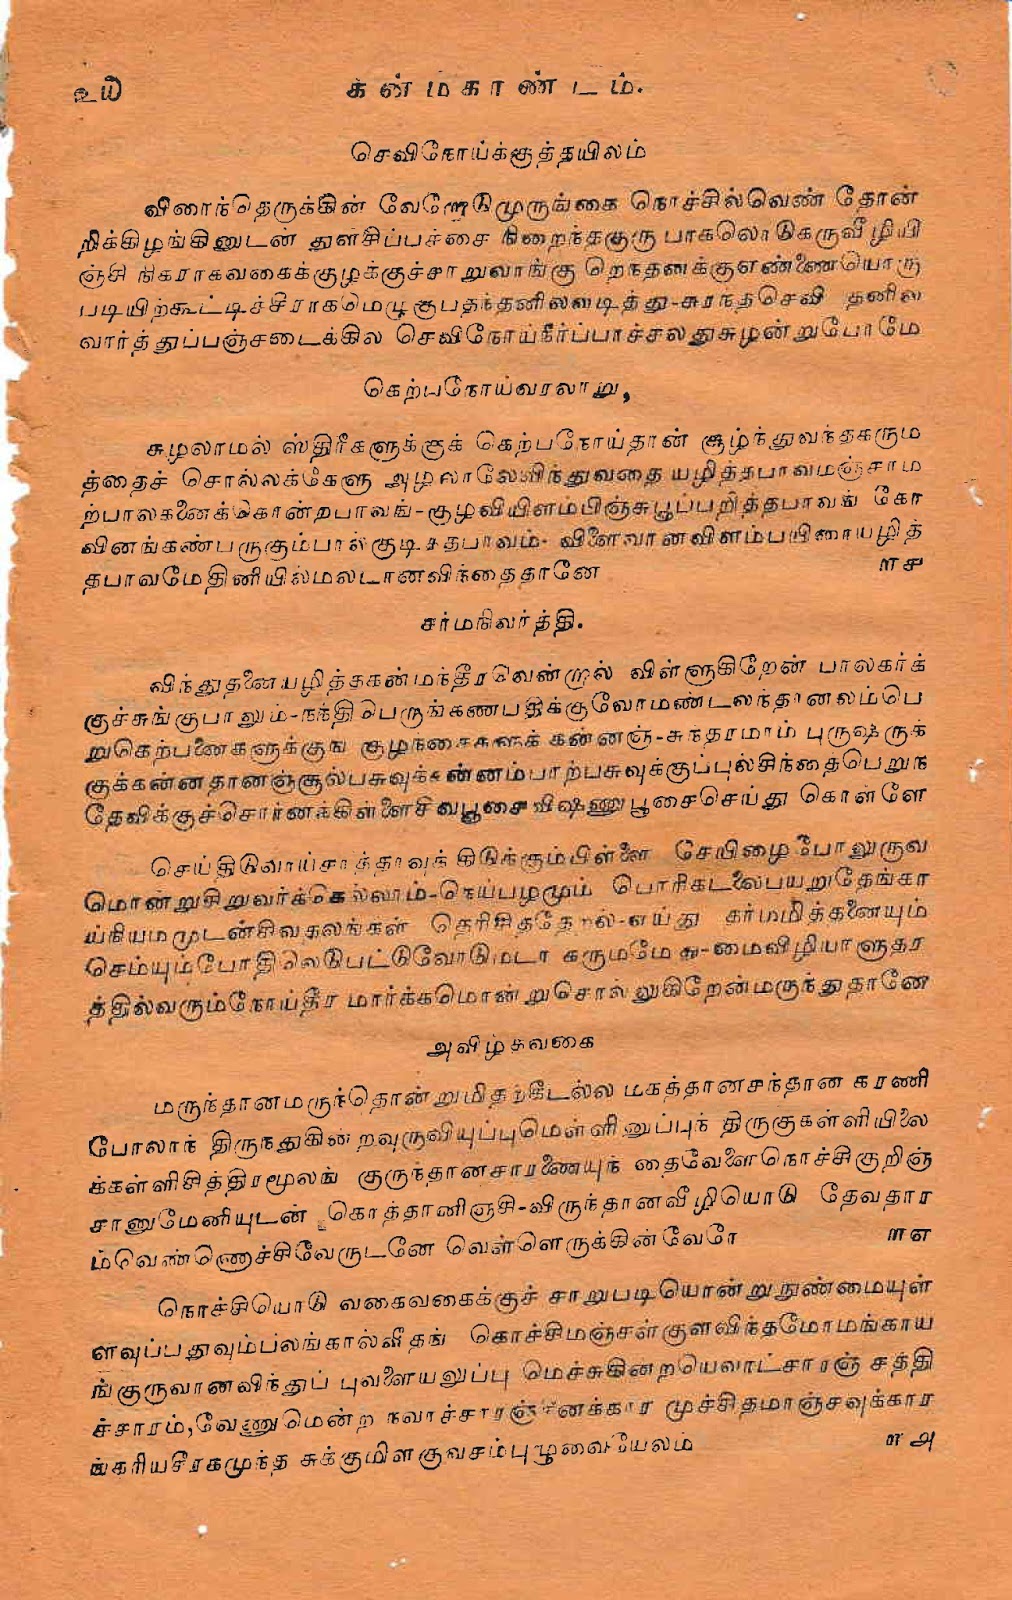 உய கன்மகாண்டம்.
செவிநோய்க்குத்தயிலம்
விரைந்தெருக்கின் வேரோடுமுருங்கை நொச்சில்வெண் தோன்
றிக்கிழங்கினுடன் துளசிப்பச்சை நிறைந்தகுரு பாகலொடுகருவீழியி
ஞ்சி நிகராகவகைக்குழக்குச்சாறுவாங்கு றெந்தனக்குஎண்ணையொரு
படியிற்கூட்டிச்சீராகமெழுகுபதந்தனிலவடித்து-சுரந்தசெவி தனில
வார்த்துப்பஞ்சடைக்கில செவிநோய்நீர்ப்பாச்சலதுசுழன்றுபோமே
கெற்பநோய்வரலாறு,
சுழலாமல் ஸ்திரீகளுக்குக் கெற்பநோய்தான் சூழ்ந்துவந்தகரும
த்தைச் சொல்லக்கேளு அழலாலேவிந்துவதை யழித்தபாவமஞ்சாம
ற்பாலகனைக்கொன்றபாவங்-சூழவியிளம்பிஞ்சுபூப்பறித்தபாவங் கோ
வினங்கண்பருகும்பால்குடிசதபாவம்- விளைவானவிளம்பயிரையழித்
தபாவமேதினியில்மலடானவிந்தைதானே ளசு
சர்மநிவர்த்தி.
விந்துதனையழித்தகன்மந்தீரவென்றால் விள்ளுகிறேன் பாலகர்க்
குச்சுங்குபாலும்-நந்திபெருங்கணபதிக்குவோமண்டலந்தானலம்பெ
றுகெற்பனைகளுக்குங் குழந்தைகளுக் கன்னஞ்-சுந்தரமாம் புருஷருக்
குக்கன்னதானஞ்சூல்பசுவுக்கன்னம்பாற்பசுவுக்குப்புல்சிந்தைபெறுந
தேவிக்குச்சொர்னக்கிள்ளைசிவபூசைவிஷ்ணுபூசைசெய்து கொள்ளே
செய்திடுவாய்சாத்தாவுக் கிடுக்கும்பிள்ளை சேயிழைபோலுருவ
மொன்றுசிறுவர்க்கெல்லாம்-நெய்பழமும் பொரிகடலைபயறுதேங்கா
ய்நியமமுடன்சிவதலங்கள் தெரிசித்தேரல்-எய்து கர்மமித்தனையும்
செம்யும்போதிலெடுபட்டுவோடுமடா கருமமேது-மைவிழியாளுதர
த்தில்வரும்நோய்தீர மார்க்கமொன்றுசொல்லுகிறேன்மருந்துதானே
அவிழ்தவகை
மருந்தானமருந்தொன்றுமிதற்கீடல்ல மகத்தானசந்தான கரணி
போலாந் திருந்துகின்றவுருவியுப்புமெள்ளினுப்புந் திருகுகள்ளியிலை
க்கள்ளிசித்திரமூலங் குருந்தானசாரணையுந் தைவேளைநொச்சிகுறிஞ்
சாணுமேனியுடன் கொத்தானிஞ்சி-விருந்தானவீழியொடு தேவதார
ம்வெண்ணொச்சிவேருடனே வெள்ளெருக்கின்வேரே ளஎ
நொச்சியொடு வகைவகைக்குச் சாறுபடியொன்றுநுண்மையுள்
ளவுப்பதுவும்பலங்கால்வீதங் கொச்சிமஞ்சள்குளவிந்தமோமங்காய
ங்குருவானவிந்துப் புவளையலுப்பு மெச்சுகின்றயெவாட்சாரஞ் சத்தி
ச்சாரம்,வேணுமென்ற நவாச்சாரஞ்சீனக்கார முச்சிதமாஞ்சவுக்கார
ங்கரியசீரகமுந்த சுக்குமிளகுவசம்புழுவையேலம் ளஅ